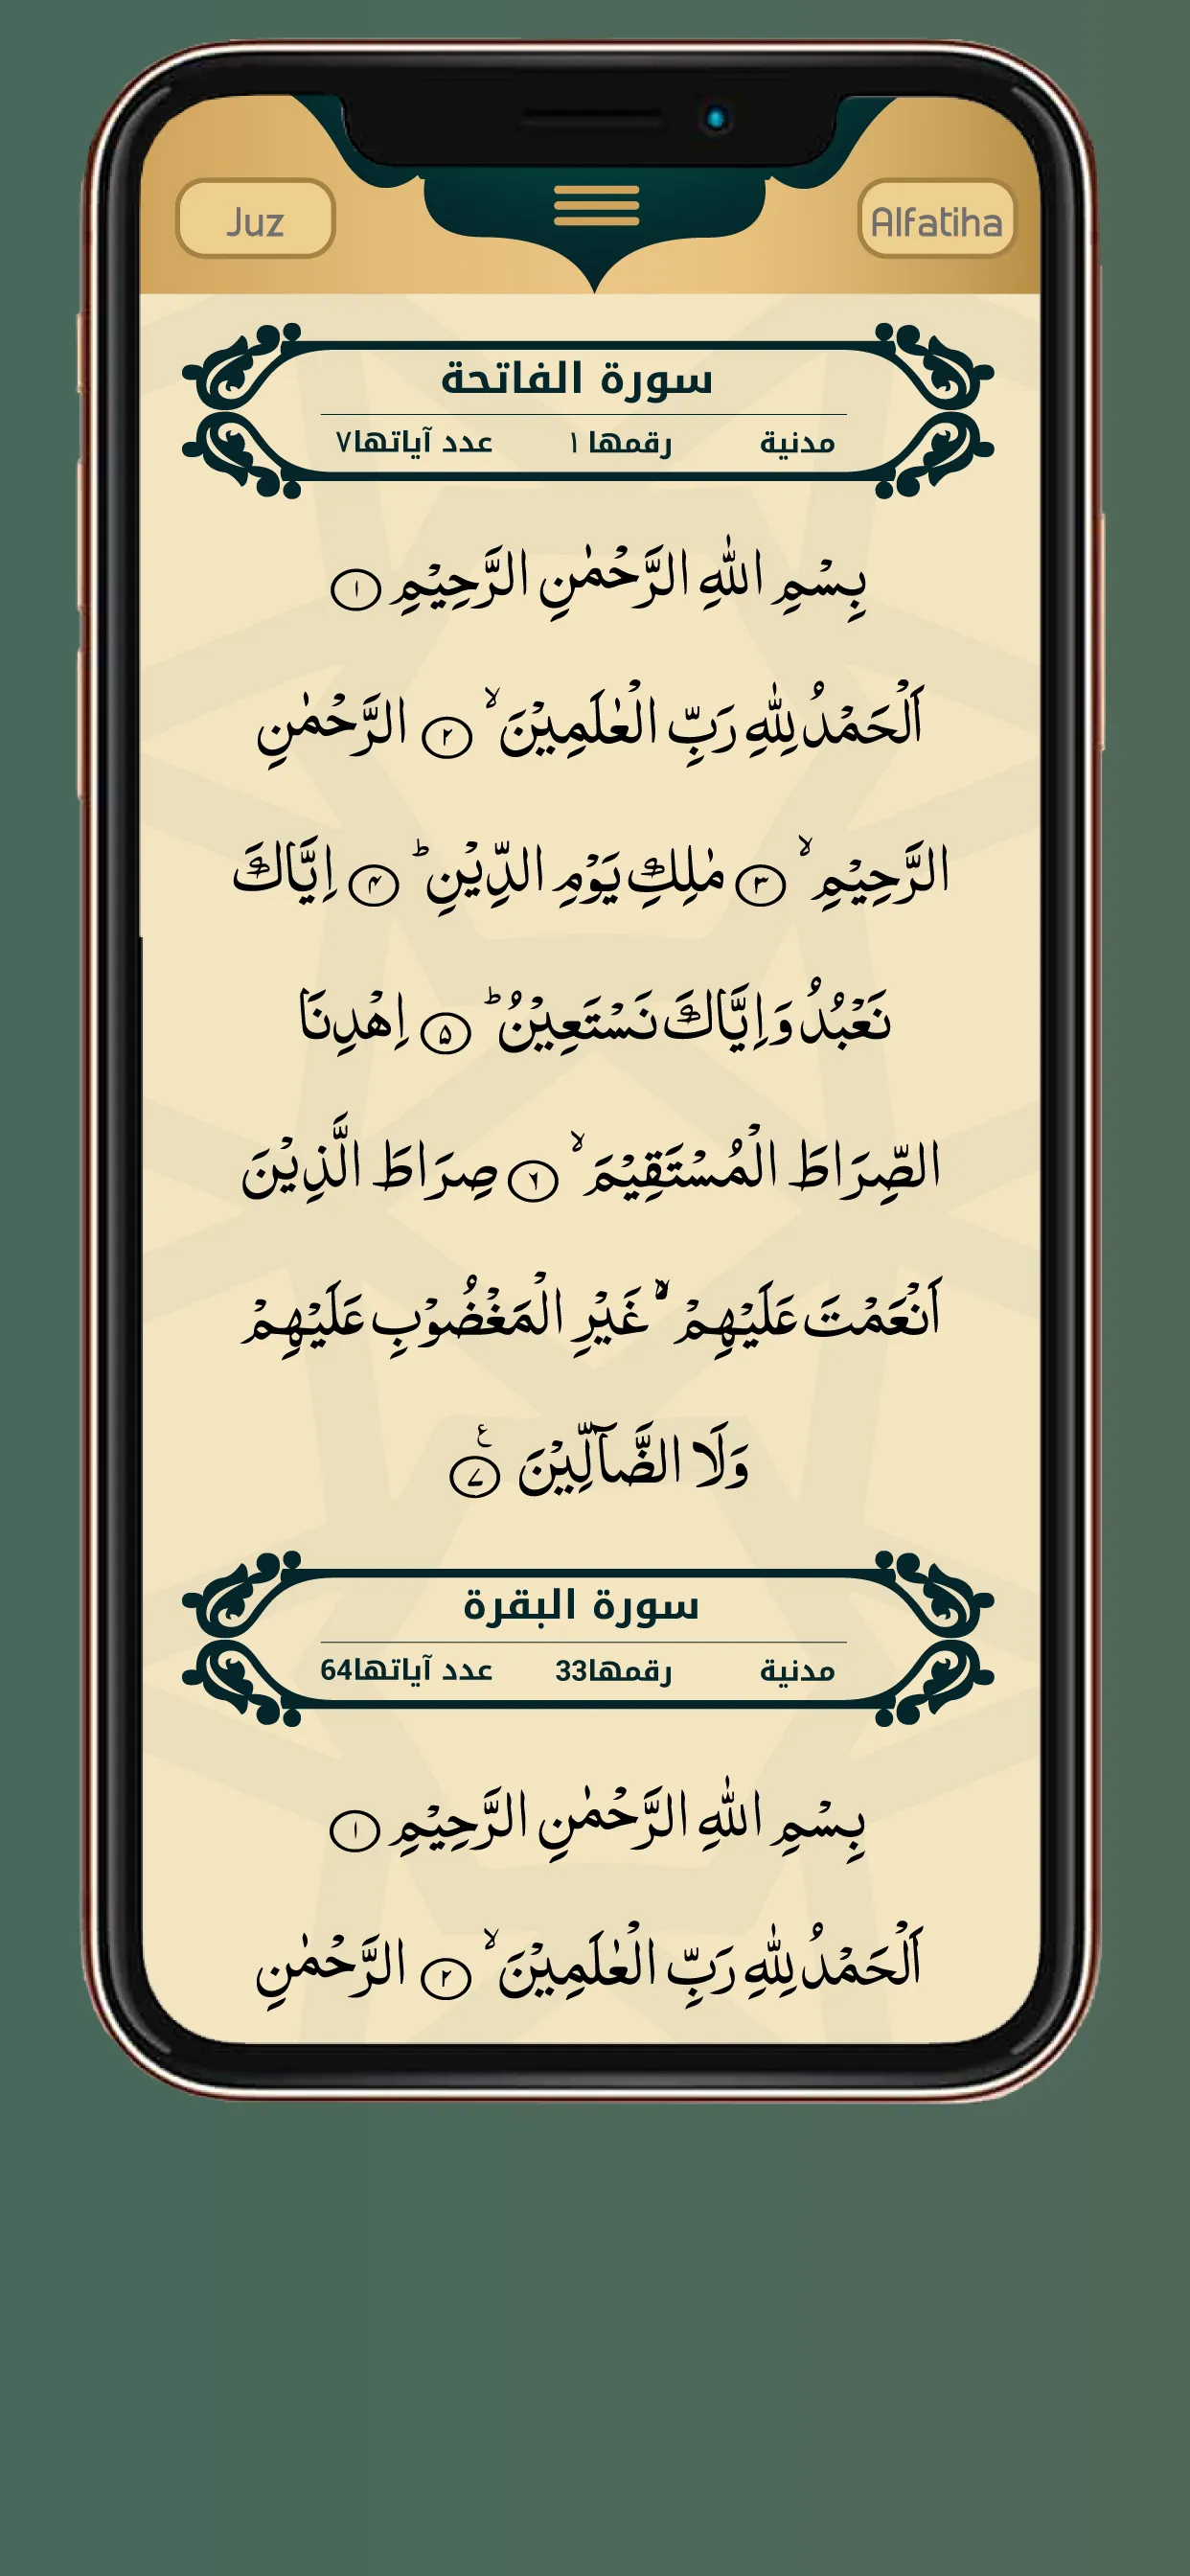 Juz
Alfatiha
سورة الفاتحة
مدنية رقمها ١ عدد آياتها٧
بِسْمِ اللّٰهِ الرَّحْمٰنِ الرَّحِيْمِ ۝١
اَلْحَمْدُ لِلّٰهِ رَبِّ الْعٰلَمِيْنَ ۙ ۝٢ الرَّحْمٰنِ
الرَّحِيْمِ ۙ ۝٣ مٰلِكِ يَوْمِ الدِّيْنِ ؕ ۝۴ اِيَّاكَ
نَعْبُدُ وَاِيَّاكَ نَسْتَعِيْنُ ؕ ۝۵ اِهْدِنَا
الصِّرَاطَ الْمُسْتَقِيْمَ ۙ ۝۶ صِرَاطَ الَّذِيْنَ
اَنْعَمْتَ عَلَيْهِمْ ۙ۬ غَيْرِ الْمَغْضُوْبِ عَلَيْهِمْ
وَلَا الضَّآلِّيْنَ ۝٧ ع
سورة البقرة
مدنية رقمها33 عدد آياتها64
بِسْمِ اللّٰهِ الرَّحْمٰنِ الرَّحِيْمِ ۝١
اَلْحَمْدُ لِلّٰهِ رَبِّ الْعٰلَمِيْنَ ۙ ۝٢ الرَّحْمٰنِ